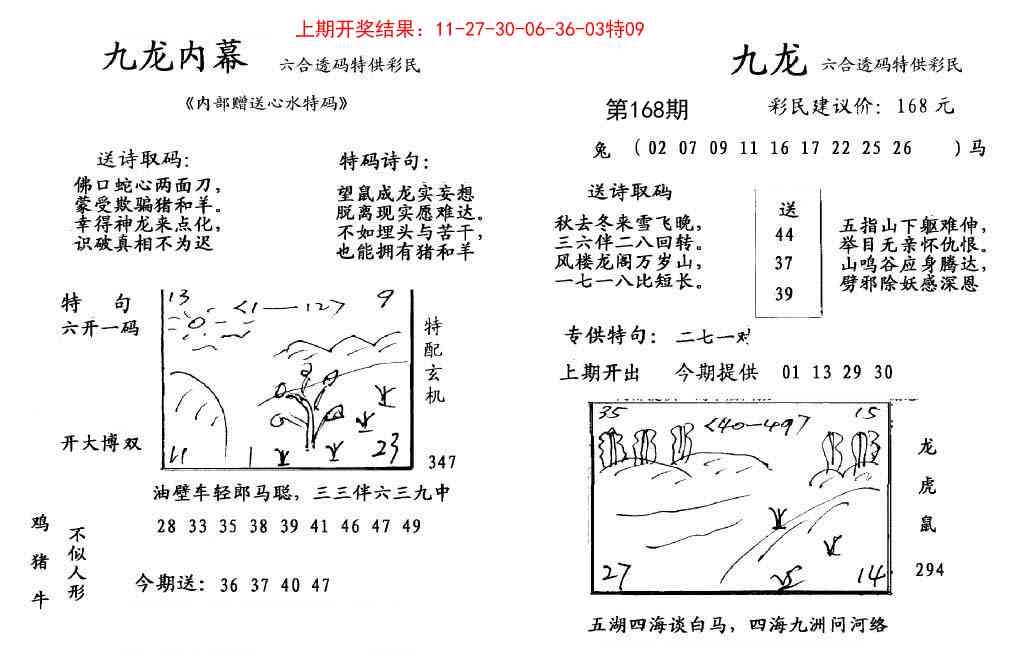 上期开奖结果：11-27-30-06-36-03特09
九龙内幕 六合透码特供彩民
《内部赠送心水特码》
送诗取码：
佛口蛇心两面刀，
蒙受欺骗猪和羊。
幸得神龙来点化，
识破真相不为迟
特码诗句：
望鼠成龙实妄想
脱离现实愿难达。
不如埋头与苦干，
也能拥有猪和羊
特 句
六开一码
开大博双
13 <1—12> 9
11 1 23
特配玄机
347
油壁车轻郎马聪，三三伴六三九中
鸡猪牛
不似人形
28 33 35 38 39 41 46 47 49
今期送：36 37 40 47
九龙 六合透码特供彩民
第168期 彩民建议价：168元
兔 （02 07 09 11 16 17 22 25 26 ）马
送诗取码
秋去冬来雪飞晚，
三六伴二八回转。
风楼龙阁万岁山，
一七一八比短长。
送
44
37
39
五指山下躯难伸，
举目无亲怀仇恨。
山鸣谷应身腾达，
劈邪除妖感深恩
专供特句：二七一对
上期开出 今期提供 01 13 29 30
35 <40-49> 15
27 14
龙虎鼠
294
五湖四海谈白马，四海九洲问河络